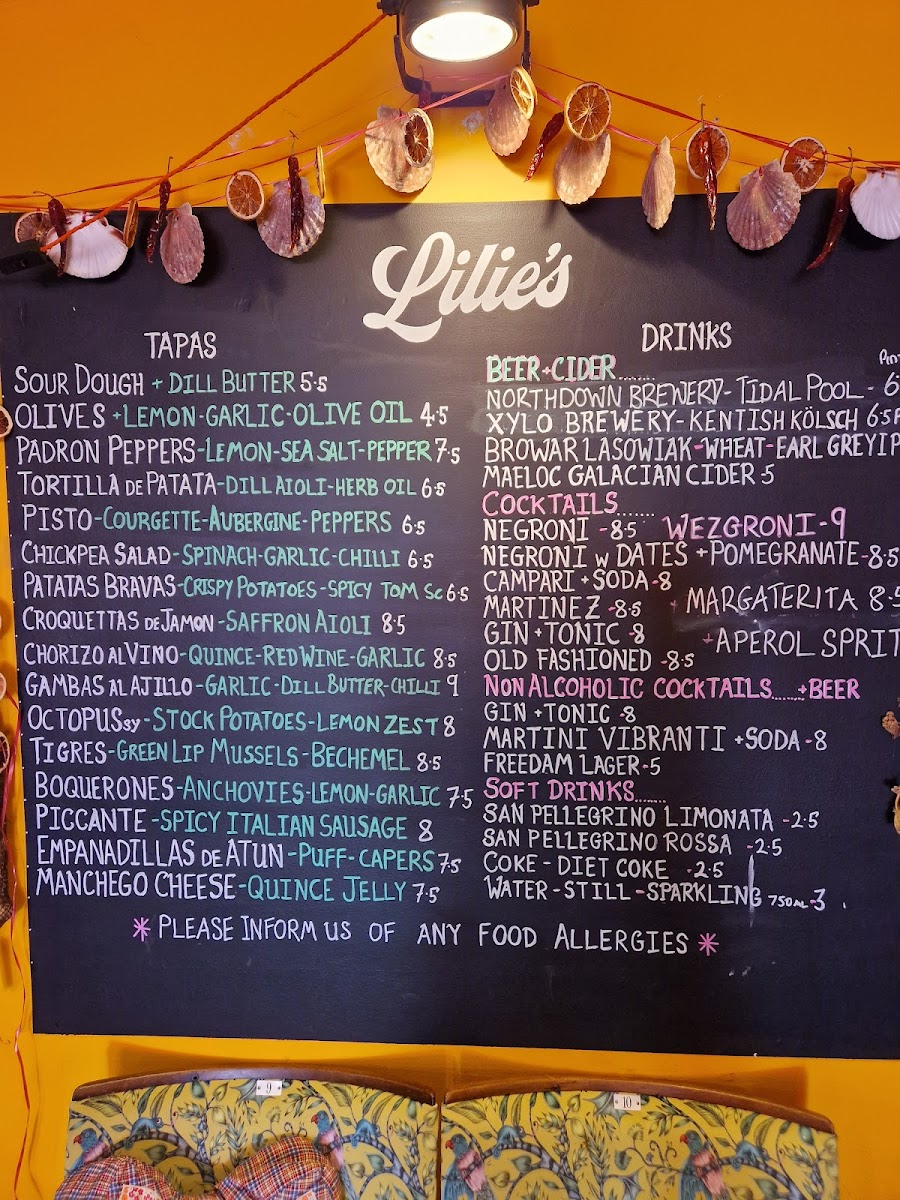 Lilie's
TAPAS
SOUR DOUGH + DILL BUTTER 5.5
OLIVES + LEMON - GARLIC - OLIVE OIL 4.5
PADRON PEPPERS - LEMON - SEA SALT - PEPPER 7.5
TORTILLA DE PATATA - DILL AIOLI - HERB OIL 6.5
PISTO - COURGETTE - AUBERGINE - PEPPERS 6.5
CHICKPEA SALAD - SPINACH - GARLIC - CHILLI 6.5
PATATAS BRAVAS - CRISPY POTATOES - SPICY TOM SC 6.5
CROQUETTAS DE JAMON - SAFFRON AIOLI 8.5
CHORIZO AL VINO - QUINCE - RED WINE - GARLIC 8.5
GAMBAS AL AJILLO - GARLIC - DILL BUTTER - CHILLI 9
OCTOPUSSY - STOCK POTATOES - LEMON ZEST 8
TIGRES - GREEN LIP MUSSELS - BECHEMEL 8.5
BOQUERONES - ANCHOVIES - LEMON - GARLIC 7.5
PICCANTE - SPICY ITALIAN SAUSAGE 8
EMPANADILLAS DE ATUN - PUFF - CAPERS 7.5
MANCHEGO CHEESE - QUINCE JELLY 7.5
DRINKS
BEER + CIDER.......
NORTHDOWN BREWERY - TIDAL POOL - 6
XYLO BREWERY - KENTISH KÖLSCH 6.5
BROWAR LASOWIAK - WHEAT - EARL GREY IP
MAELOC GALACIAN CIDER 5
COCKTAILS.......
NEGRONI - 8.5 WEZGRONI - 9
NEGRONI W DATES + POMEGRANATE - 8.5
CAMPARI + SODA - 8
MARTINEZ - 8.5 MARGATERITA 8.5
GIN + TONIC - 8 + APEROL SPRIT
OLD FASHIONED - 8.5
NON ALCOHOLIC COCKTAILS.....+ BEER
GIN + TONIC - 8
MARTINI VIBRANTI + SODA - 8
FREEDAM LAGER - 5
SOFT DRINKS.......
SAN PELLEGRINO LIMONATA - 2.5
SAN PELLEGRINO ROSSA - 2.5
COKE - DIET COKE - 2.5
WATER - STILL - SPARKLING 750ML - 3
* PLEASE INFORM US OF ANY FOOD ALLERGIES *
9
10